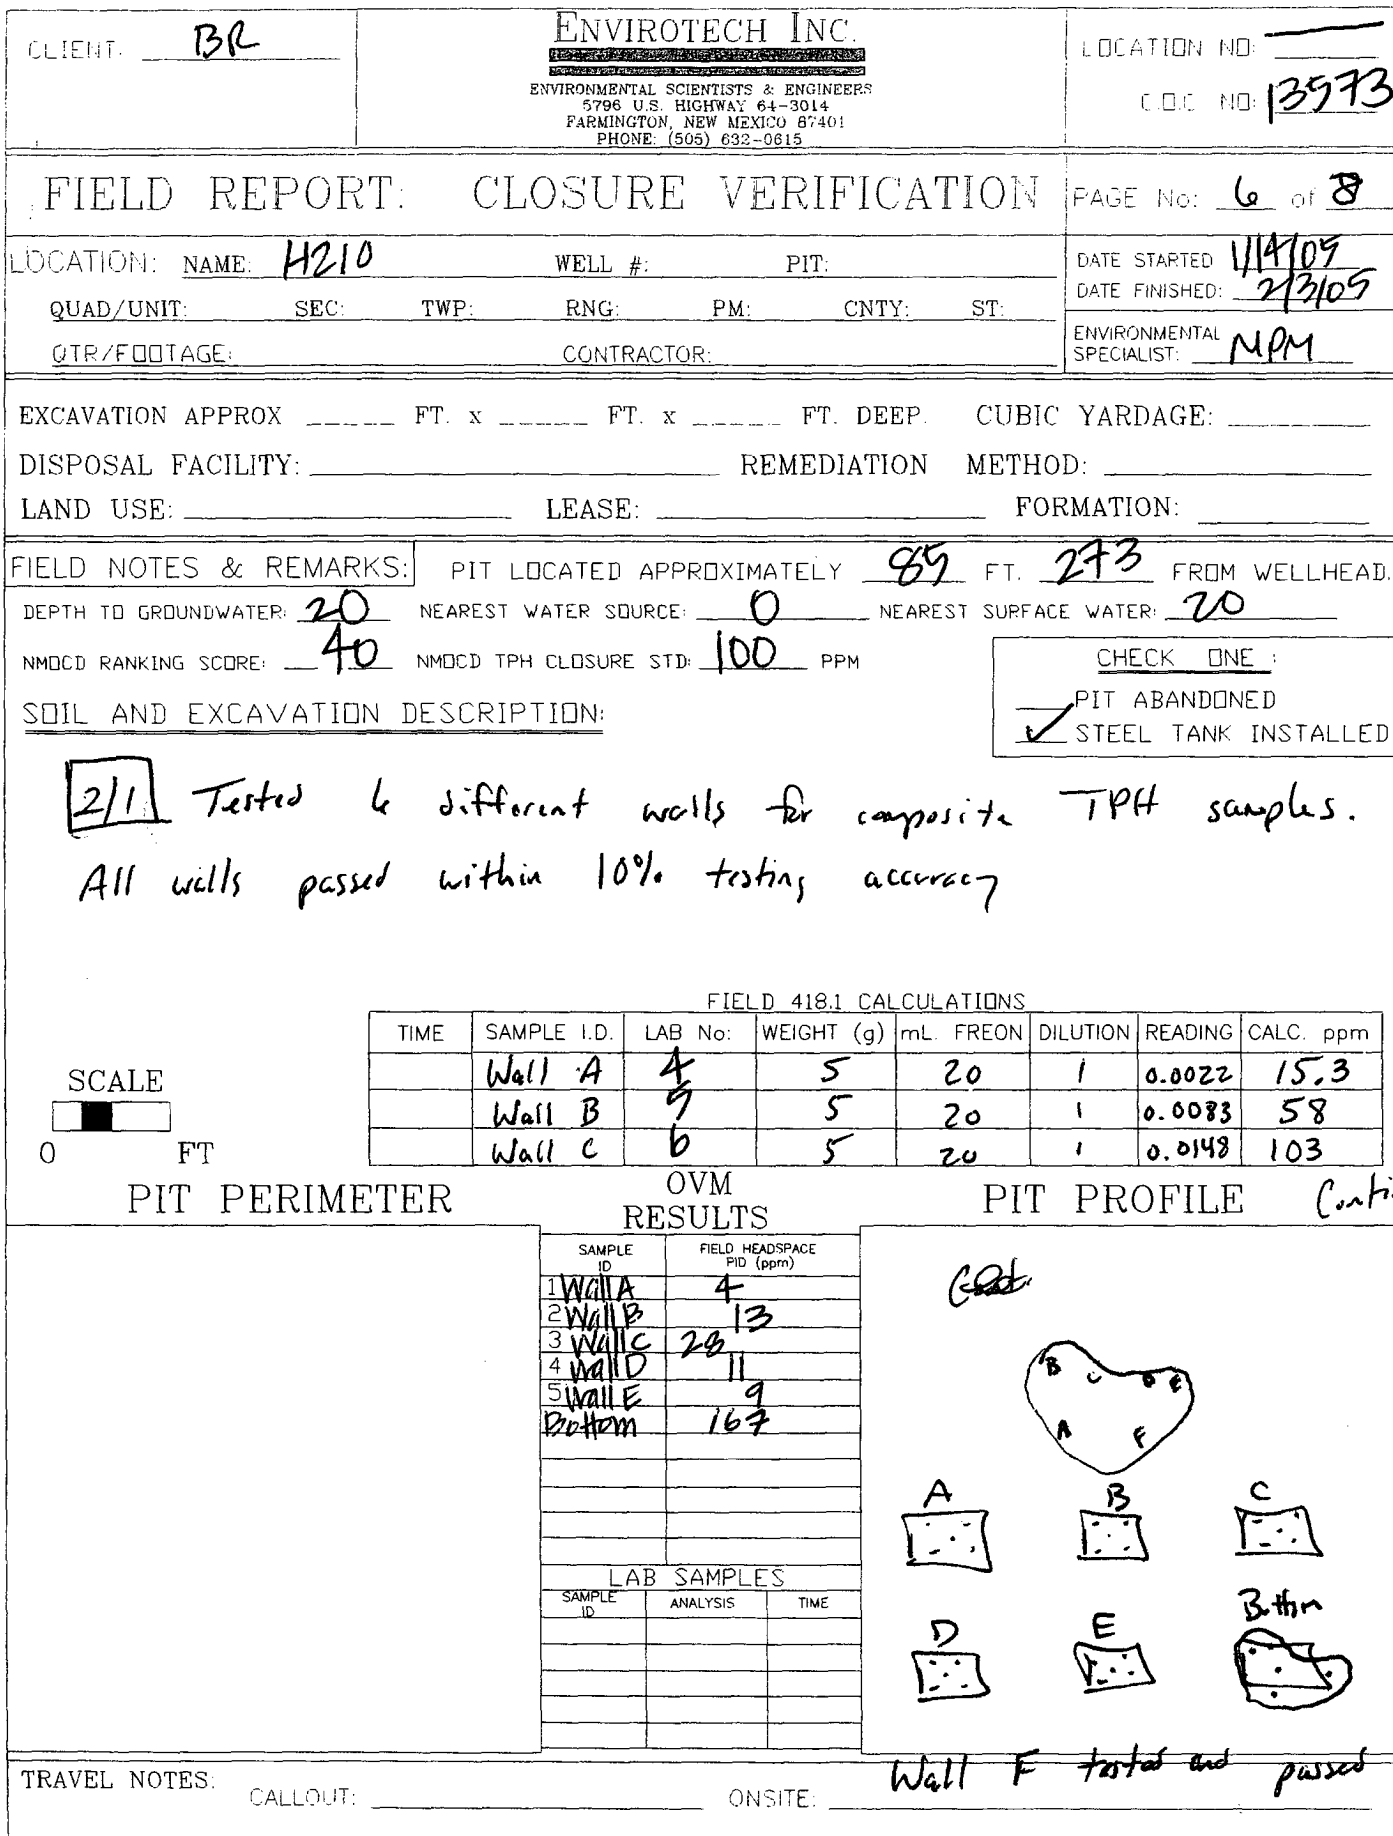 CLIENT: BR
ENVIROTECH INC.
ENVIRONMENTAL SCIENTISTS & ENGINEERS
5796 U.S. HIGHWAY 64-3014
FARMINGTON, NEW MEXICO 87401
PHONE: (505) 632-0615
LOCATION NO:
C.O.C NO: 13573
FIELD REPORT: CLOSURE VERIFICATION
PAGE No: 6 of 8
LOCATION: NAME: H210 WELL #: PIT:
QUAD/UNIT: SEC: TWP: RNG: PM: CNTY: ST:
QTR/FOOTAGE: CONTRACTOR:
DATE STARTED 1/14/05
DATE FINISHED: 2/3/05
ENVIRONMENTAL
SPECIALIST: MPM
EXCAVATION APPROX FT. x FT. x FT. DEEP. CUBIC YARDAGE:
DISPOSAL FACILITY: REMEDIATION METHOD:
LAND USE: LEASE: FORMATION:
FIELD NOTES & REMARKS: PIT LOCATED APPROXIMATELY 85 FT. 273 FROM WELLHEAD.
DEPTH TO GROUNDWATER: 20 NEAREST WATER SOURCE: 0 NEAREST SURFACE WATER: 20
NMOCD RANKING SCORE: 40 NMOCD TPH CLOSURE STD: 100 PPM
CHECK ONE :
PIT ABANDONED
✓ STEEL TANK INSTALLED
SOIL AND EXCAVATION DESCRIPTION:
2/1 Tested 6 different walls for composite TPH samples.
All walls passed within 10% testing accuracy
FIELD 418.1 CALCULATIONS
TIME SAMPLE I.D. LAB No: WEIGHT (g) mL. FREON DILUTION READING CALC. ppm
Wall A 4 5 20 1 0.0022 15.3
Wall B 5 5 20 1 0.0083 58
Wall C 6 5 20 1 0.0148 103
SCALE
0 FT
PIT PERIMETER
OVM
RESULTS
SAMPLE ID FIELD HEADSPACE PID (ppm)
1 Wall A 4
2 Wall B 13
3 Wall C 28
4 Wall D 11
5 Wall E 9
Bottom 167
LAB SAMPLES
SAMPLE ID ANALYSIS TIME
PIT PROFILE
B C D E
A F
A B C
D E Bottom
Wall F tested and passed
TRAVEL NOTES: CALLOUT: ONSITE: